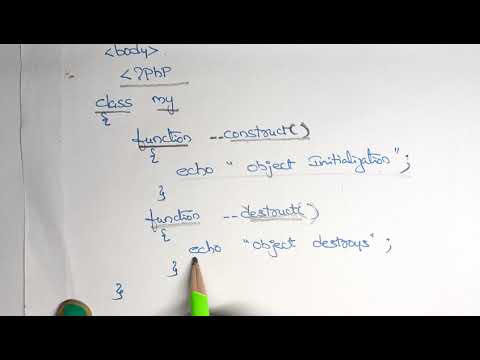 <body>
<?PhP
class my
{
function __construct()
{
echo "object Initialization";
}
function __destruct()
{
echo "object destroys";
}
}